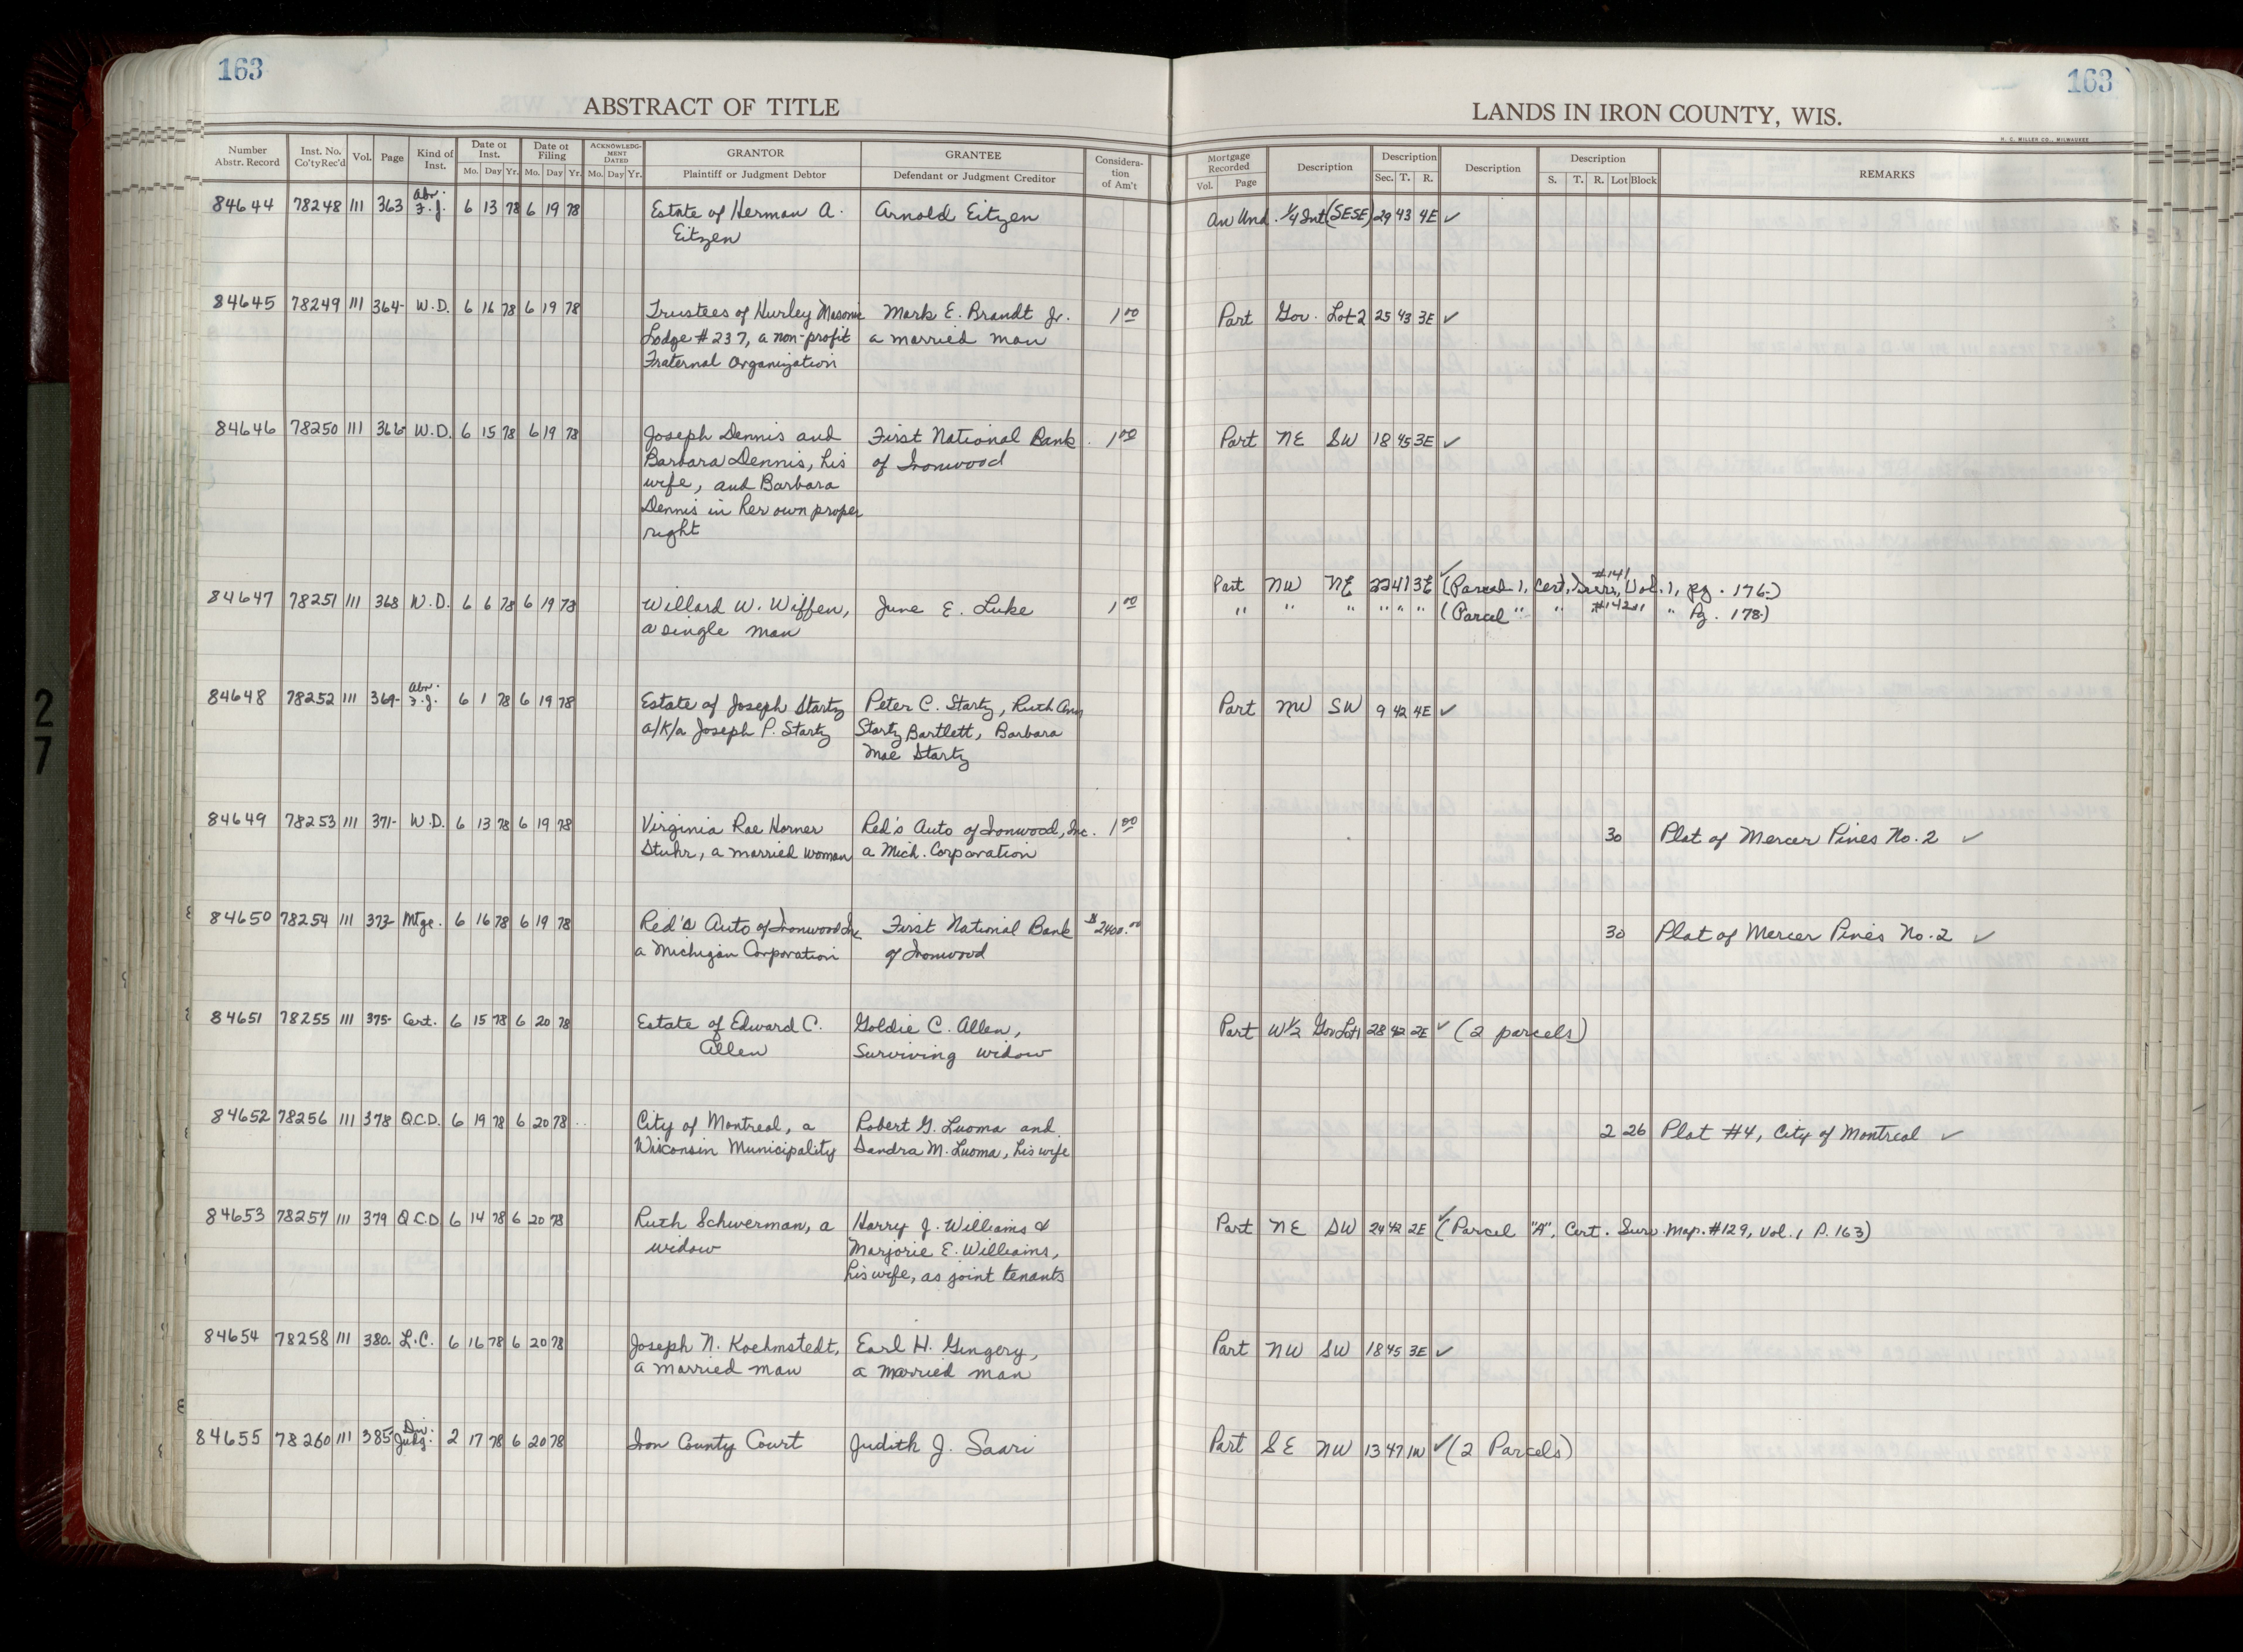 163
163
ABSTRACT OF TITLE
LANDS IN IRON COUNTY, WIS.
H. C. MILLER CO., MILWAUKEE
Number Abstr. Record | Inst. No. Co'ty Rec'd | Vol. | Page | Kind of Inst. | Date of Inst. Mo. Day Yr. | Date of Filing Mo. Day Yr. | ACKNOWLEDGMENT DATED Mo. Day Yr. | GRANTOR Plaintiff or Judgment Debtor | GRANTEE Defendant or Judgment Creditor | Consideration of Am't | Mortgage Recorded Vol. Page | Description | Description Sec. T. R. | Description | Description S. T. R. Lot Block | REMARKS
84644 78248 111 363 Abr. F.J. 6 13 78 6 19 78 Estate of Herman A. Arnold Eitzen An Und. 1/4 Int (SESE) 29 43 4E ✓
Eitzen
84645 78249 111 364- W.D. 6 16 78 6 19 78 Trustees of Hurley Masonic Mark E. Brandt Jr. 1 00 Part Gov. Lot 2 25 43 3E ✓
Lodge #237, a non-profit a married man
Fraternal Organization
84646 78250 111 366- W.D. 6 15 78 6 19 78 Joseph Dennis and First National Bank 1 00 Part NE SW 18 45 3E ✓
Barbara Dennis, his of Ironwood
wife, and Barbara
Dennis in her own proper
right
84647 78251 111 368 W.D. 6 6 78 6 19 78 Willard W. Wiffen, June E. Luke 1 00 Part NW NE 22 41 3E ✓ (Parcel 1, Cert. Surv. #141 Vol. 1, pg. 176-)
a single man " " " " " " (Parcel " " #142 " " Pg. 178-)
84648 78252 111 369- Abr. F.J. 6 1 78 6 19 78 Estate of Joseph Startz Peter C. Startz, Ruth Ann Part NW SW 9 42 4E ✓
a/k/a Joseph P. Startz Startz Bartlett, Barbara
Mae Startz
84649 78253 111 371- W.D. 6 13 78 6 19 78 Virginia Rae Horner Red's Auto of Ironwood, Inc. 1 00 30 Plat of Mercer Pines No. 2 ✓
Stuhr, a married woman a Mich. Corporation
84650 78254 111 373- Mtge. 6 16 78 6 19 78 Red's Auto of Ironwood Inc First National Bank $2400.00 30 Plat of Mercer Pines No. 2 ✓
a Michigan Corporation of Ironwood
84651 78255 111 375- Cert. 6 15 78 6 20 78 Estate of Edward C. Goldie C. Allen, Part W1/2 Gov Lot 1 28 42 2E ✓ (2 parcels)
Allen Surviving widow
84652 78256 111 378 Q.C.D. 6 19 78 6 20 78 City of Montreal, a Robert G. Luoma and 2 26 Plat #4, City of Montreal ✓
Wisconsin Municipality Sandra M. Luoma, his wife
84653 78257 111 379 Q.C.D 6 14 78 6 20 78 Ruth Schwerman, a Harry J. Williams & Part NE SW 24 42 2E ✓ (Parcel "A", Cert. Surv. Map. #129, Vol. 1 P. 163)
widow Marjorie E. Williams,
his wife, as joint tenants
84654 78258 111 380. L.C. 6 16 78 6 20 78 Joseph N. Koehmstedt, Earl H. Gingery, Part NW SW 18 45 3E ✓
a married man a married man
84655 78260 111 385 Div. Judg. 2 17 78 6 20 78 Iron County Court Judith J. Saari Part SE NW 13 47 1W ✓ (2 Parcels)
27